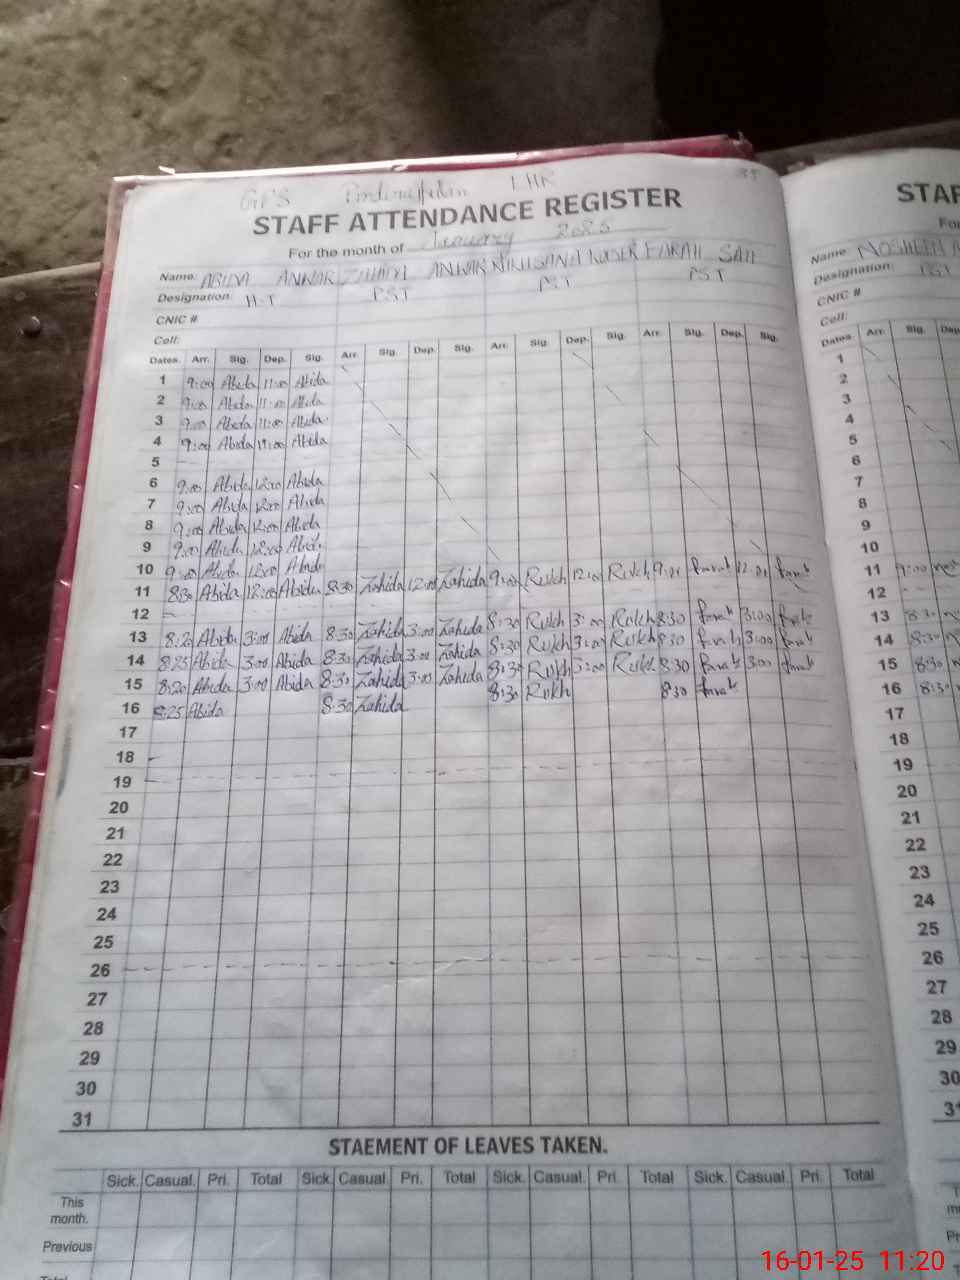 GPS LHR
35
STAFF ATTENDANCE REGISTER
For the month of January 2025
Name: ABIDA ANWAR ZAHIDA ANWAR RUKHSANA KOSER FARAH SAH
Designation: H.T PST PST PST
CNIC #
Cell:
Dates. Arr. Sig. Dep. Sig. Arr. Sig. Dep. Sig. Arr. Sig. Dep. Sig. Arr. Sig. Dep. Sig.
1 9:00 Abida 11:00 Abida
2 9:00 Abida 11:00 Abida
3 9:00 Abida 11:00 Abida
4 9:00 Abida 11:00 Abida
5
6 9:00 Abida 12:00 Abida
7 9:00 Abida 12:00 Abida
8 9:00 Abida 12:00 Abida
9 9:00 Abida 12:00 Abida
10 9:00 Abida 12:00 Abida
11 8:30 Abida 12:00 Abida 8:30 Zahida 12:00 Zahida 9:00 Rukh 12:00 Rukh 9:00 Farah 12:00 Farah
12
13 8:20 Abida 3:00 Abida 8:30 Zahida 3:00 Zahida 8:30 Rukh 3:00 Rukh 8:30 Farah 3:00 Farah
14 8:25 Abida 3:00 Abida 8:30 Zahida 3:00 Zahida 8:30 Rukh 3:00 Rukh 8:30 Farah 3:00 Farah
15 8:20 Abida 3:00 Abida 8:30 Zahida 3:00 Zahida 8:30 Rukh 3:00 Rukh 8:30 Farah 3:00 Farah
16 8:25 Abida 8:30 Zahida 8:30 Rukh 8:30 Farah
17
18
19
20
21
22
23
24
25
26
27
28
29
30
31
STAEMENT OF LEAVES TAKEN.
Sick. Casual. Pri. Total Sick. Casual Pri. Total Sick. Casual. Pri. Total Sick. Casual. Pri. Total
This
month.
Previous
Total
STAF
For
Name: NOSHEEN
Designation: PST
CNIC #
Cell:
Dates. Arr. Sig. Dep
1
2
3
4
5
6
7
8
9
10
11 9:00
12
13 8:30
14 8:30
15 8:30
16 8:30
17
18
19
20
21
22
23
24
25
26
27
28
29
30
31
16-01-25 11:20